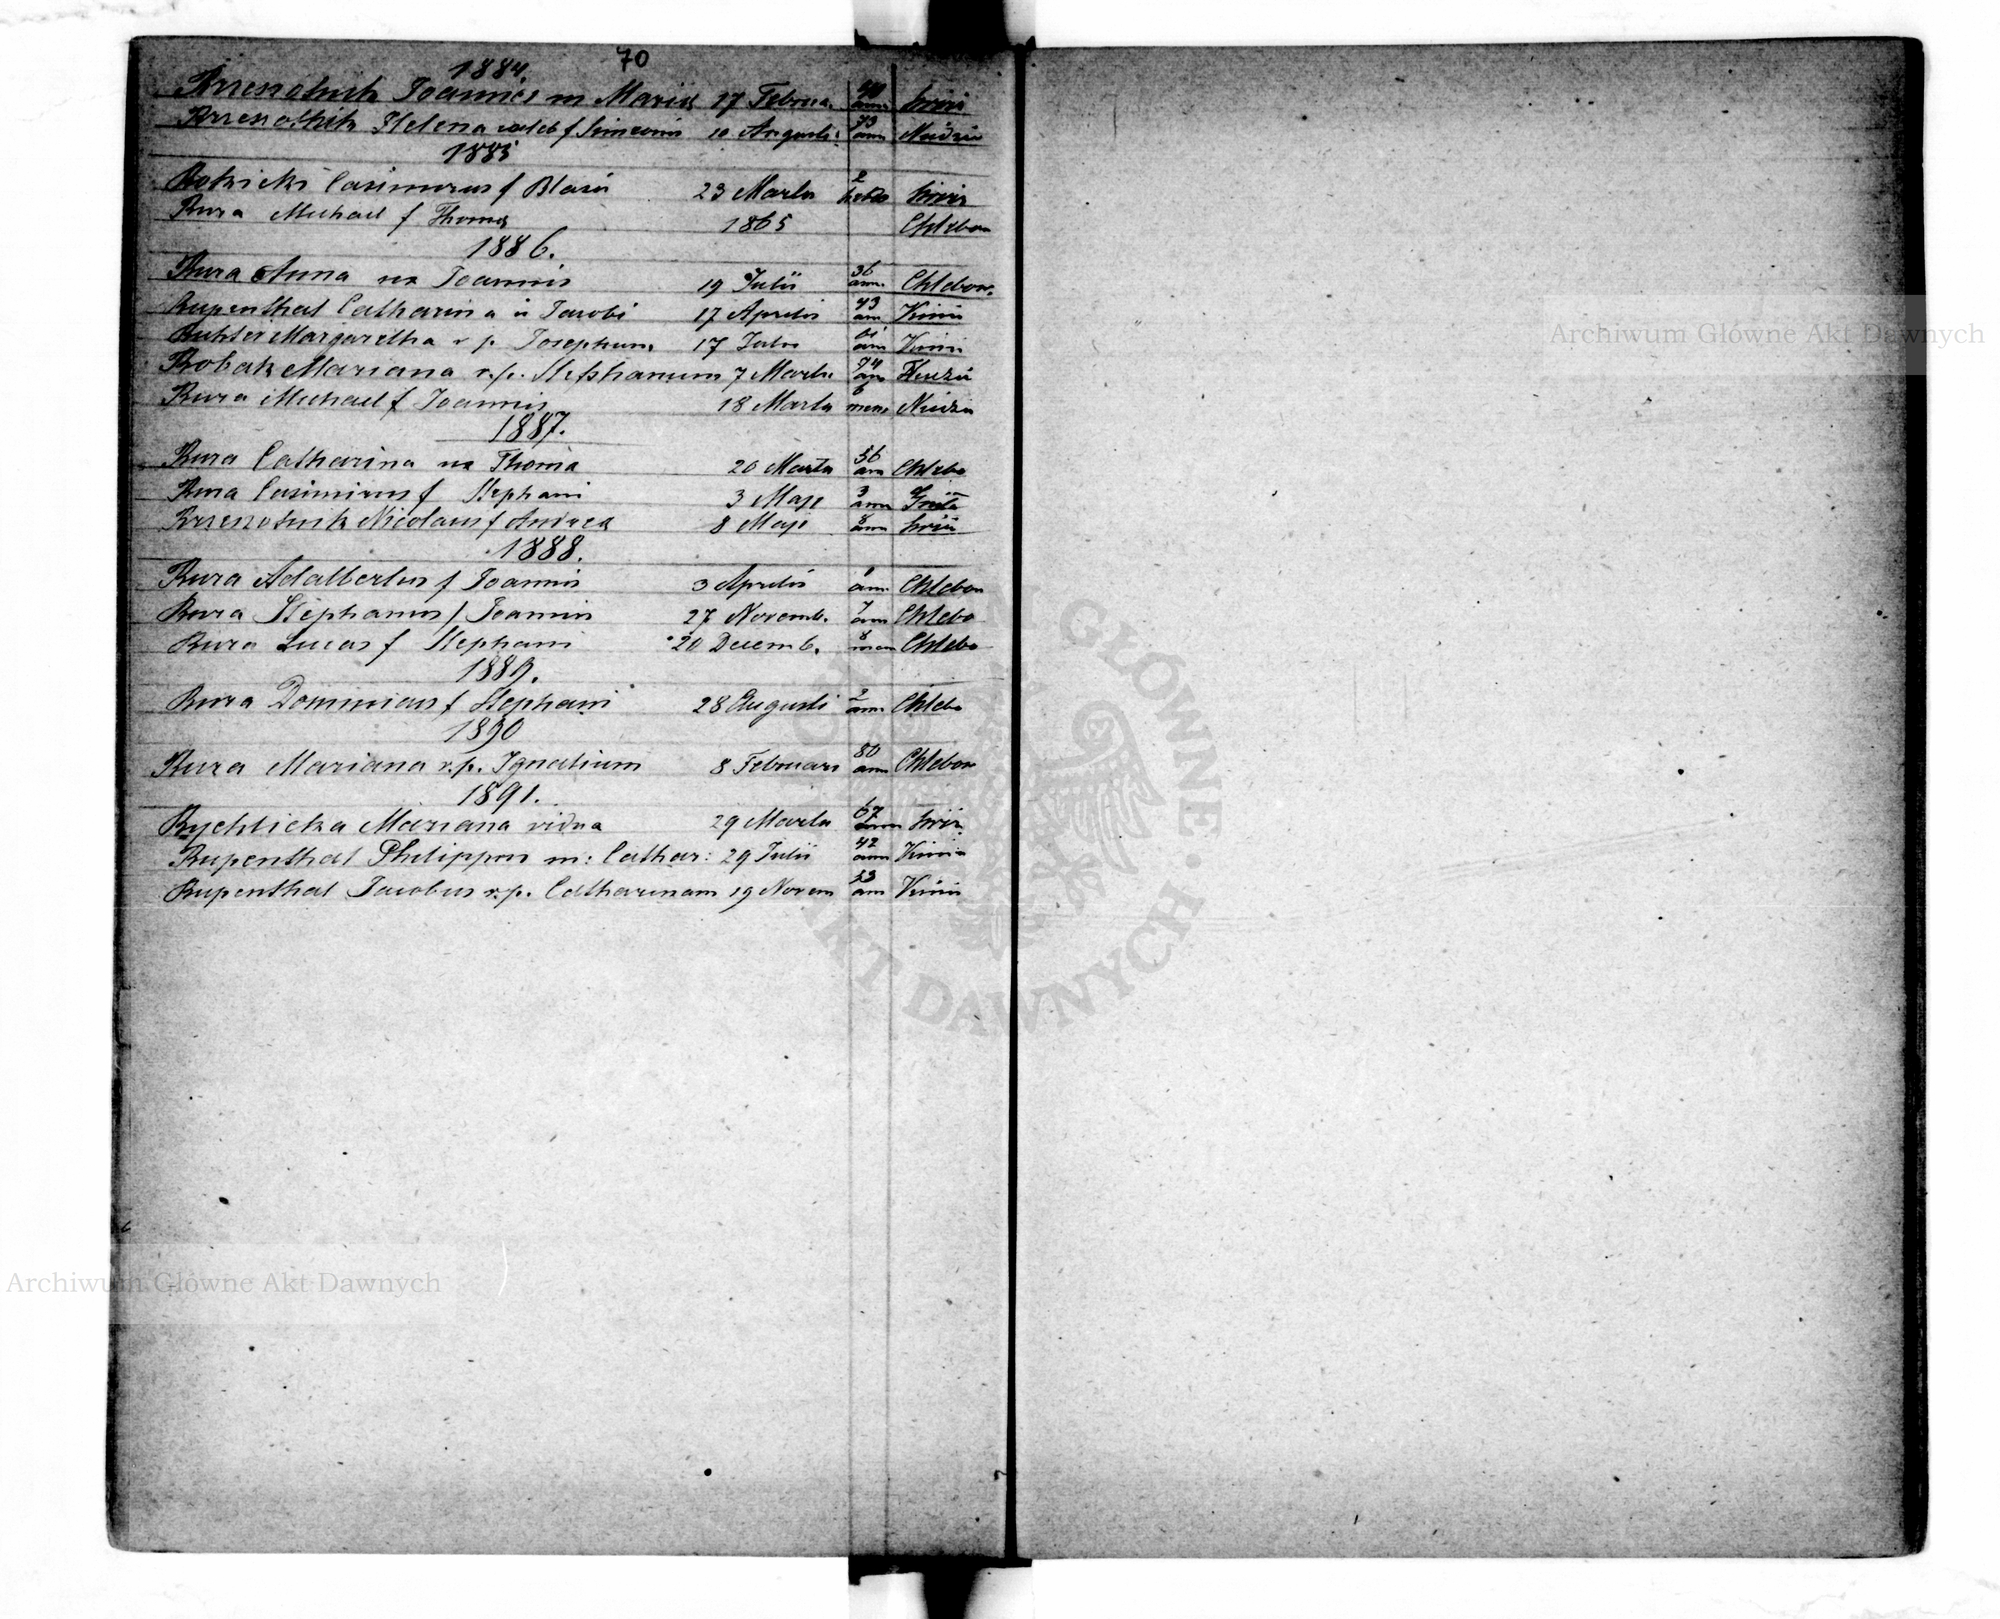 70
1884.
Rzezotnik Joannes m Maria 17 Februa. 40 ann
Rzezotnik Helena f Simeonis 10 Augusti 73 ann Niedzia
1885
Rokicki Casimirus f Blasii 23 Martii 2 hebdo
Rura Michael f Thoma 1865 Chlebow
1886.
Rura Anna ux Joannis 19 Julii 36 ann. Chlebow.
Rupenthal Catharina u Jacobi 17 Aprilis 43 ann
Margaretha r p. Josephum 17 61 ann
Robak Mariana r.p. Stephanum 7 Martii 74 ann
Rura Michael f Joannis 18 Martii 6 mens Niedzia
1887.
Rura Catharina ux Thoma 20 Martii 56 ann Chlebo
Rura Casimirus f Stephani 3 Maji 3 ann
Rzezotnik Nicolaus f Andrea 8 Maji ann
1888.
Rura Adalbertus f Joannis 3 Aprilis 1 ann Chlebow
Rura Stephanus f Joannis 27 Novemb. 7 ann Chlebo
Rura Lucas f Stephani 20 Decemb. 8 Chlebo
1889.
Rura Dominicus f Stephani 28 Augusti 2 ann Chlebo
1890
Rura Mariana r.p. Ignatium 8 Februari 80 ann Chlebow
1891.
Rychlicka Mariana vidua 29 Martii 67 ann
Rupenthal Philippus m: Cathar: 29 Julii 42 ann
Rupenthal Jacobus r.p. Catharinam 19 Novem 53 ann
Archiwum Główne Akt Dawnych
Archiwum Główne Akt Dawnych
GŁÓWNE AKT DAWNYCH